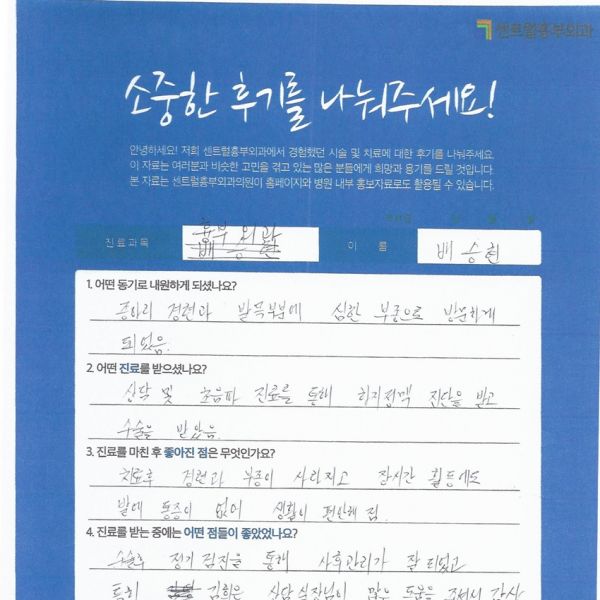 센트럴흉부외과
소중한 후기를 나눠주세요!
안녕하세요! 저희 센트럴흉부외과에서 경험했던 시술 및 치료에 대한 후기를 나눠주세요.
이 자료는 여러분과 비슷한 고민을 겪고 있는 많은 분들에게 희망과 용기를 드릴 것입니다.
본 자료는 센트럴흉부외과의원이 홈페이지와 병원 내부 홍보자료로도 활용될 수 있습니다.
진료과목 흉부외과 이 름 배승현
배승현
1. 어떤 동기로 내원하게 되셨나요?
종아리 경련과 발목부분에 심한 부종으로 방문하게
되었음.
2. 어떤 진료를 받으셨나요?
상담 및 초음파 진료를 통해 하지정맥 진단을 받고
수술을 받았음.
3. 진료를 마친 후 좋아진 점은 무엇인가요?
치료후 경련과 부종이 사라지고 장시간 활동에도
발에 통증이 없어 생활이 편안해 짐.
4. 진료를 받는 중에는 어떤 점들이 좋았었나요?
수술후 정기 검진을 통해 사후관리가 잘 되었고
특히 김희은 상담실장님이 많은 도움을 주셔서 감사